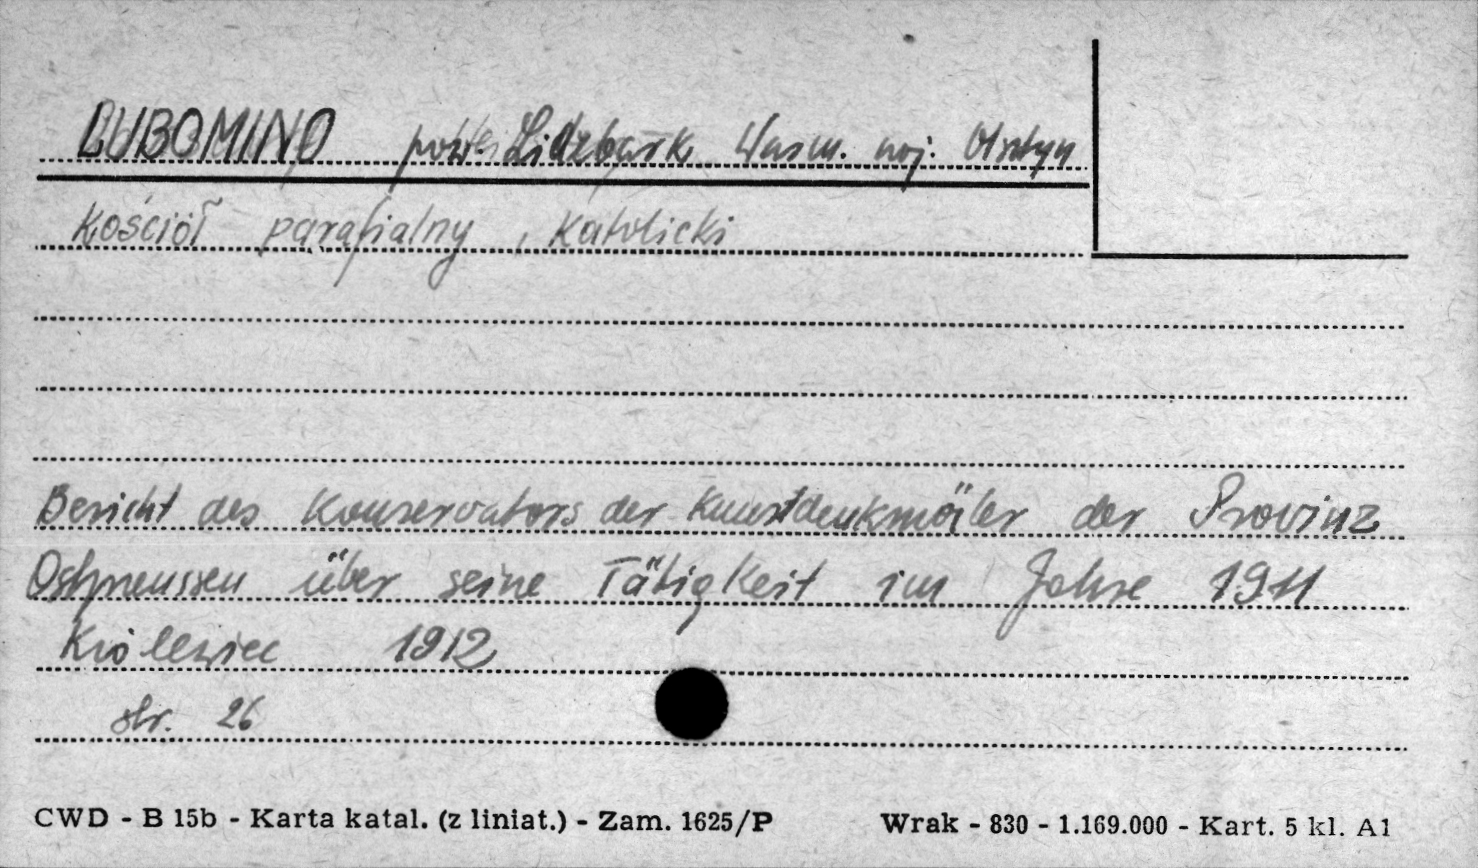 LUBOMINO pow. Lidzbark Warm. woj. Olsztyn
Kościół parafialny, katolicki
Bericht des Konservators der Kunstdenkmäler der Provinz
Ostpreussen über seine Tätigkeit im Jahre 1911
Królewiec 1912
str. 26
CWD - B 15b - Karta katal. (z liniat.) - Zam. 1625/P Wrak - 830 - 1.169.000 - Kart. 5 kl. A1